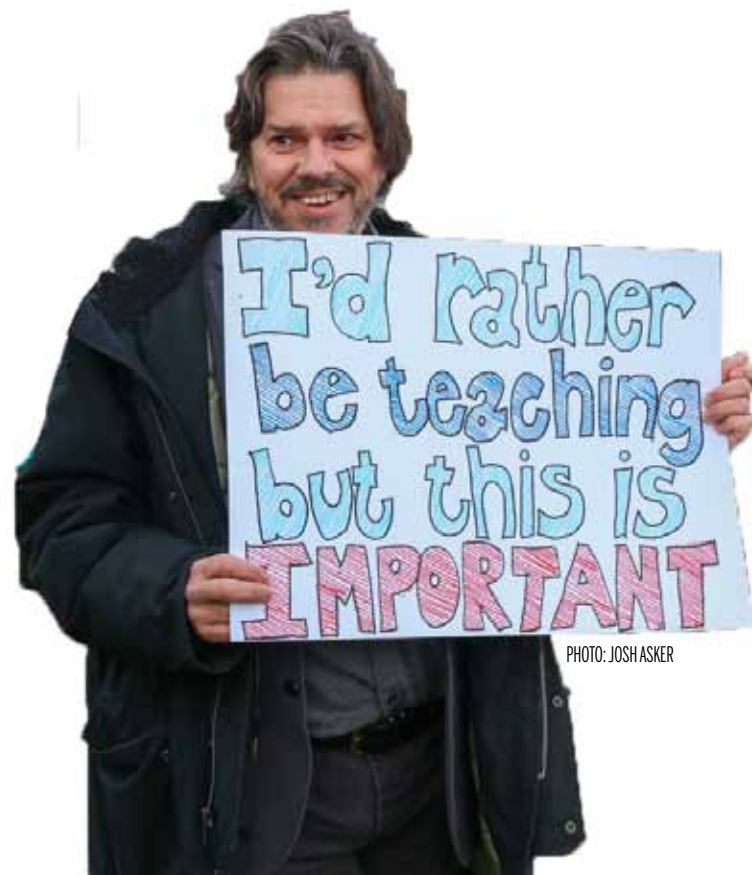 I'd rather
be teaching
but this is
IMPORTANT
PHOTO: JOSH ASKER